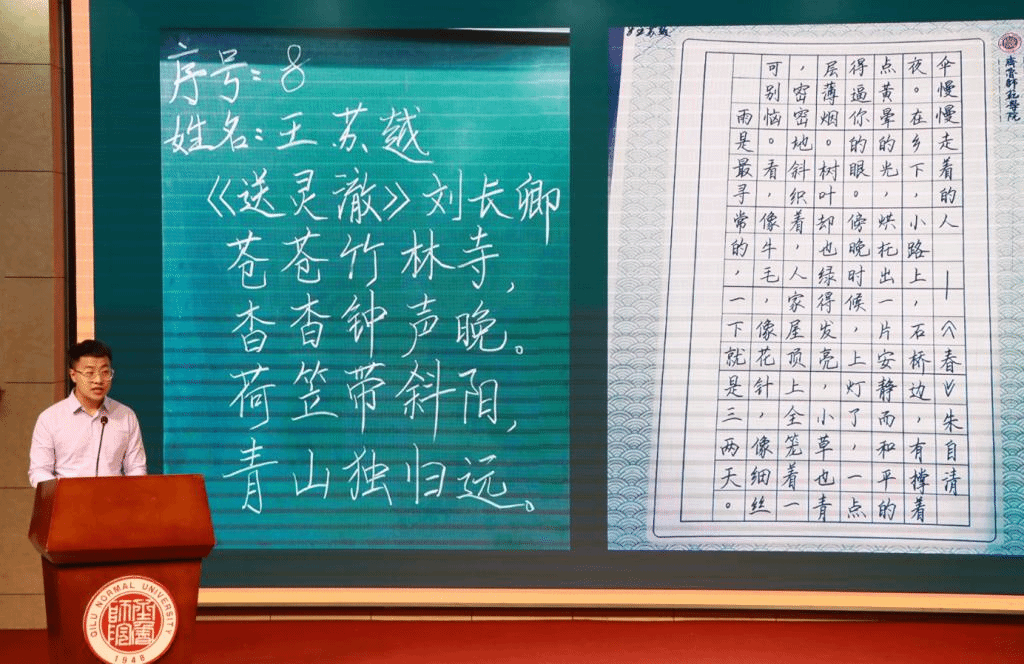 序号：8
姓名：王苏越
《送灵澈》刘长卿
苍苍竹林寺，
杳杳钟声晚。
荷笠带斜阳，
青山独归远。
8 王苏越
雨是最寻常的，一下就是三两天。
可别恼。看，像牛毛，像花针，像细丝
，密密地斜织着，人家屋顶上全笼着一
层薄烟。树叶却也绿得发亮，小草也青
得逼你的眼。傍晚时候，上灯了，一点
点黄晕的光，烘托出一片安静而和平的
夜。在乡下，小路上，石桥边，有撑着
伞慢慢走着的人 —《春》朱自清
齊魯師範學院
QILU NORMAL UNIVERSITY
1948